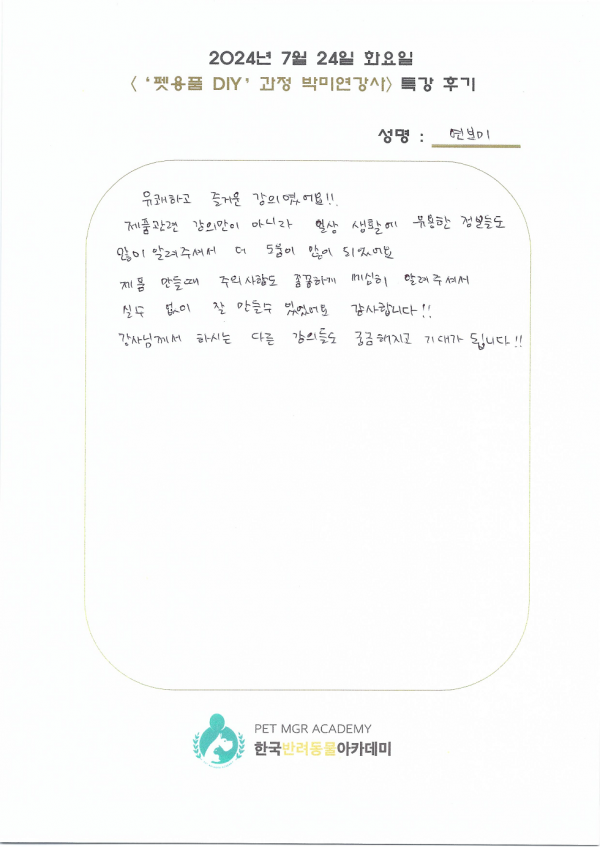 2024년 7월 24일 화요일
< '펫용품 DIY' 과정 박미연강사> 특강 후기
성명 : 연보미
유쾌하고 즐거운 강의였어요!!.
제품관련 강의만이 아니라 일상 생활에 유용한 정보들도
많이 알려주셔서 더 도움이 많이 되었어요
제품 만들때 주의사항도 꼼꼼하게 세심히 알려주셔서
실수 없이 잘 만들수 있었어요 감사합니다!!
강사님께서 하시는 다른 강의들도 궁금해지고 기대가 됩니다!!
PET MGR ACADEMY
한국반려동물아카데미